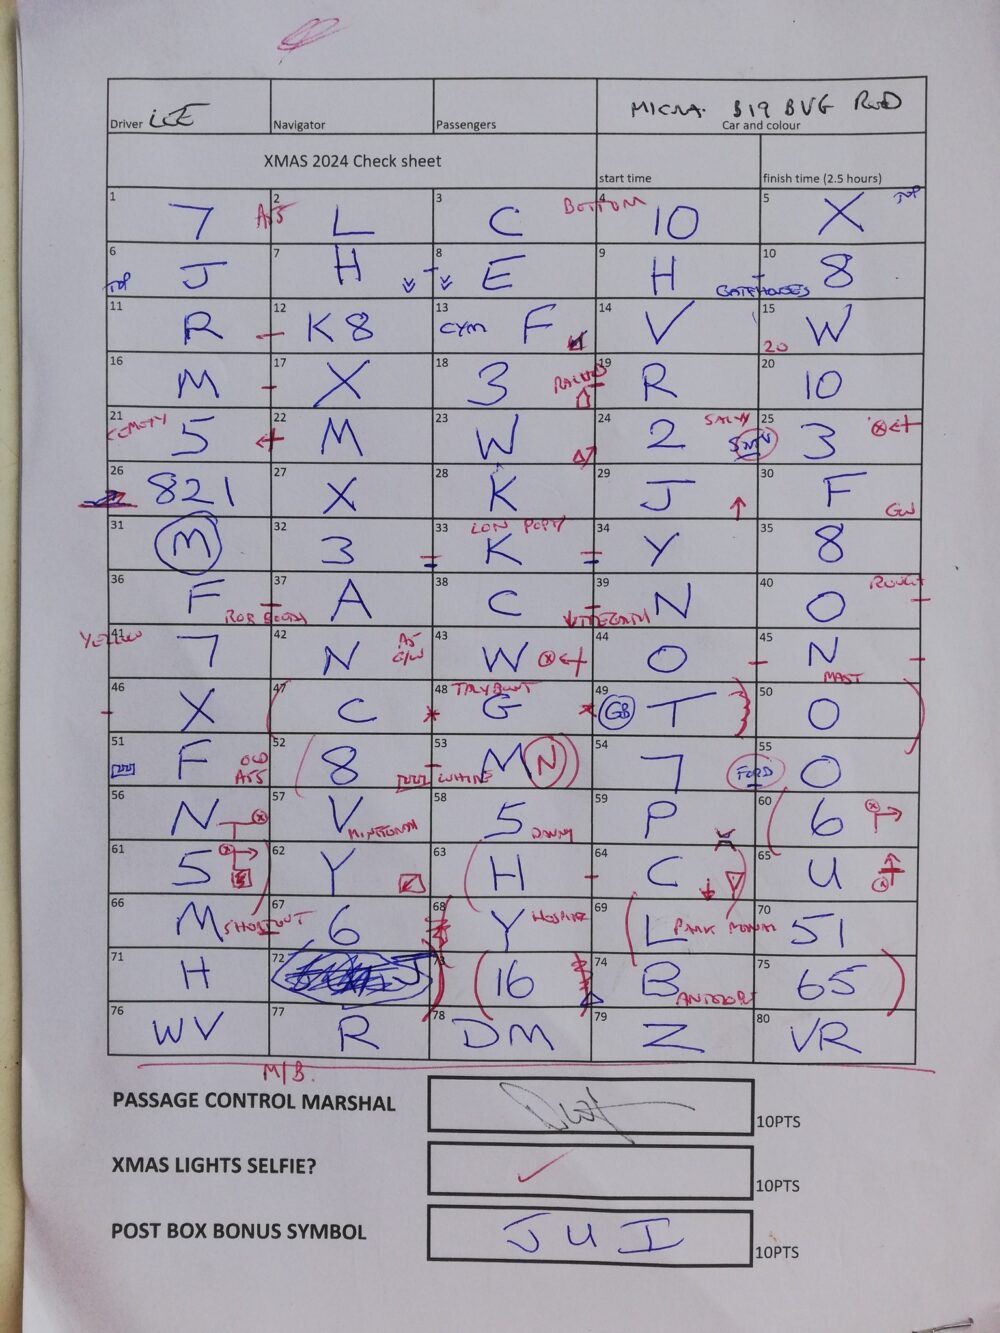 Driver LEE Navigator Passengers MICRA. B19 BVG RED
Car and colour
XMAS 2024 Check sheet start time finish time (2.5 hours)
1 7 A55 2 L 3 C BOTTOM 4 10 5 X TOP
6 TOP J 7 H 8 E 9 H GATEHOUSES 10 8
11 R 12 K8 13 CYM F 14 V 15 20 W
16 M 17 X 18 3 19 R 20 10
21 5 22 M 23 W 24 2 SMN 25 3
26 821 27 X 28 K 29 J 30 F GW
31 M 32 3 33 LON POPTY K 34 Y 35 8
36 F 37 A 38 C 39 N 40 O
41 YELLOW 7 42 N A5 43 W 44 O 45 N MAST
46 X 47 C 48 G 49 GB T 50 O
51 F OLD A55 52 8 53 WHITE M N 54 7 FORD 55 O
56 N 57 V 58 5 59 P 60 6
61 5 62 Y 63 H 64 C 65 U
66 M SHORTCUT 67 6 68 Y 69 L PARK 70 51
71 H 72 J 73 16 74 B 75 65
76 WV 77 R 78 DM 79 Z 80 VR
M/B.
PASSAGE CONTROL MARSHAL 10PTS
XMAS LIGHTS SELFIE? 10PTS
POST BOX BONUS SYMBOL J U I 10PTS